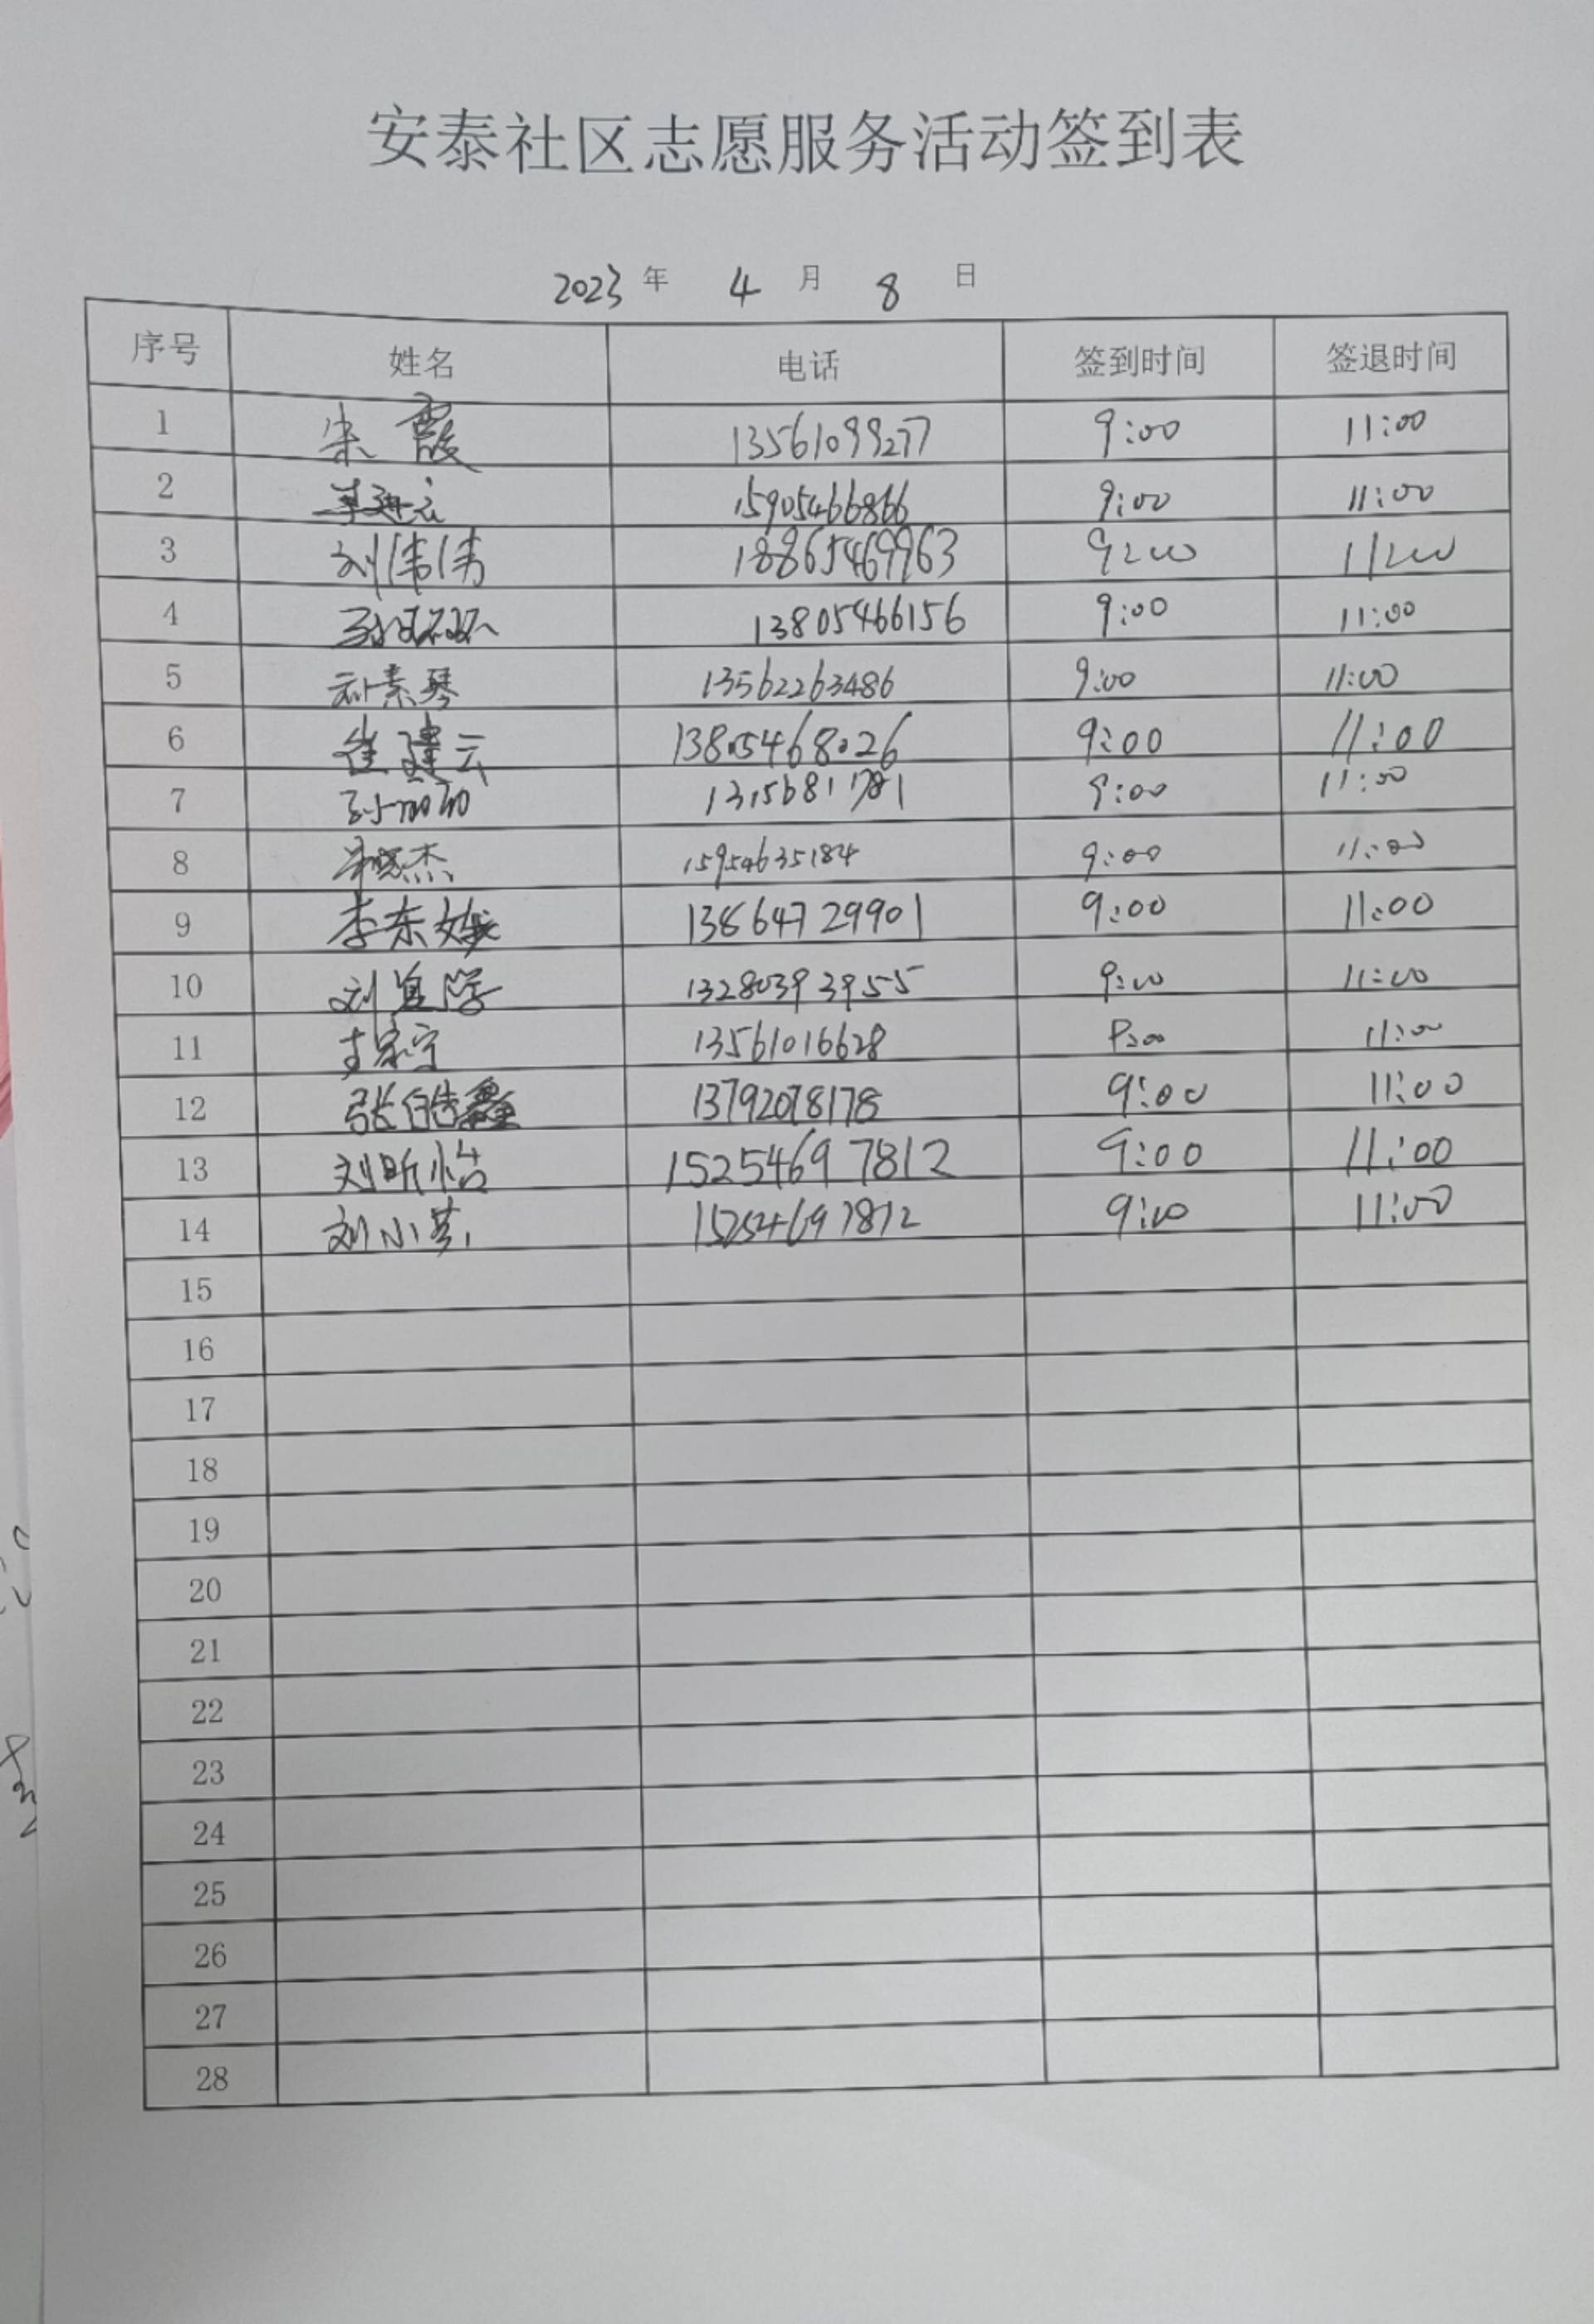 安泰社区志愿服务活动签到表
2023 年 4 月 8 日
序号 姓名 电话 签到时间 签退时间
1 宋霞 13561099277 9:00 11:00
2 15905466866 9:00 11:00
3 刘伟伟 18865469963 9:00 11:00
4 13805466156 9:00 11:00
5 孙素琴 13562263486 9:00 11:00
6 崔建云 13805468026 9:00 11:00
7 13156811781 9:00 11:00
8 15954635184 9:00 11:00
9 李东娥 13864729901 9:00 11:00
10 13280393955 9:00 11:00
11 13561016628 9:00 11:00
12 张皓鑫 13792078178 9:00 11:00
13 刘昕怡 15254697812 9:00 11:00
14 刘小英 15254697812 9:00 11:00
15
16
17
18
19
20
21
22
23
24
25
26
27
28